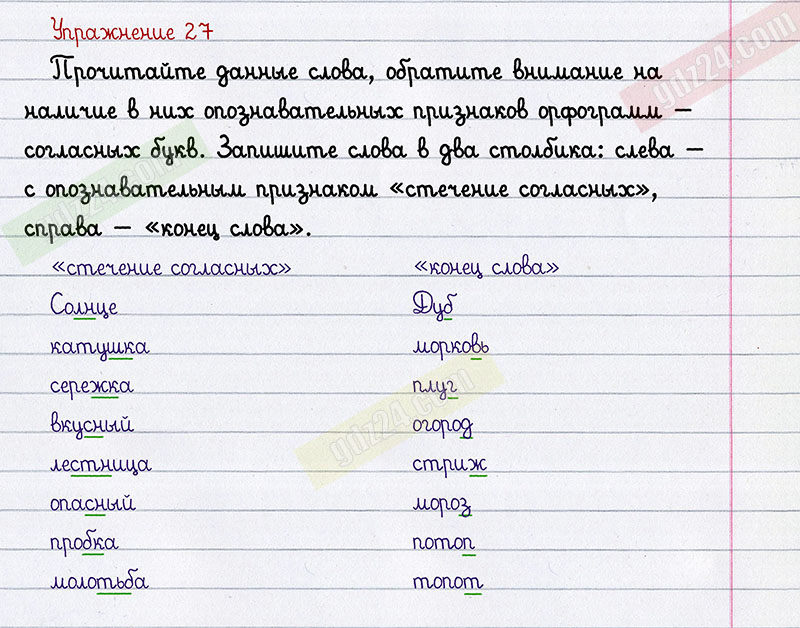 Упражнение 27
Прочитайте данные слова, обратите внимание на
наличие в них опознавательных признаков орфограмм –
согласных букв. Запишите слова в два столбика: слева –
с опознавательным признаком «стечение согласных»,
справа – «конец слова».
«стечение согласных» «конец слова»
Солнце Дуб
катушка морковь
сережка плуг
вкусный огород
лестница стриж
опасный мороз
пробка потоп
молотьба топот
gdz24.com
gdz24.com
gdz24.com